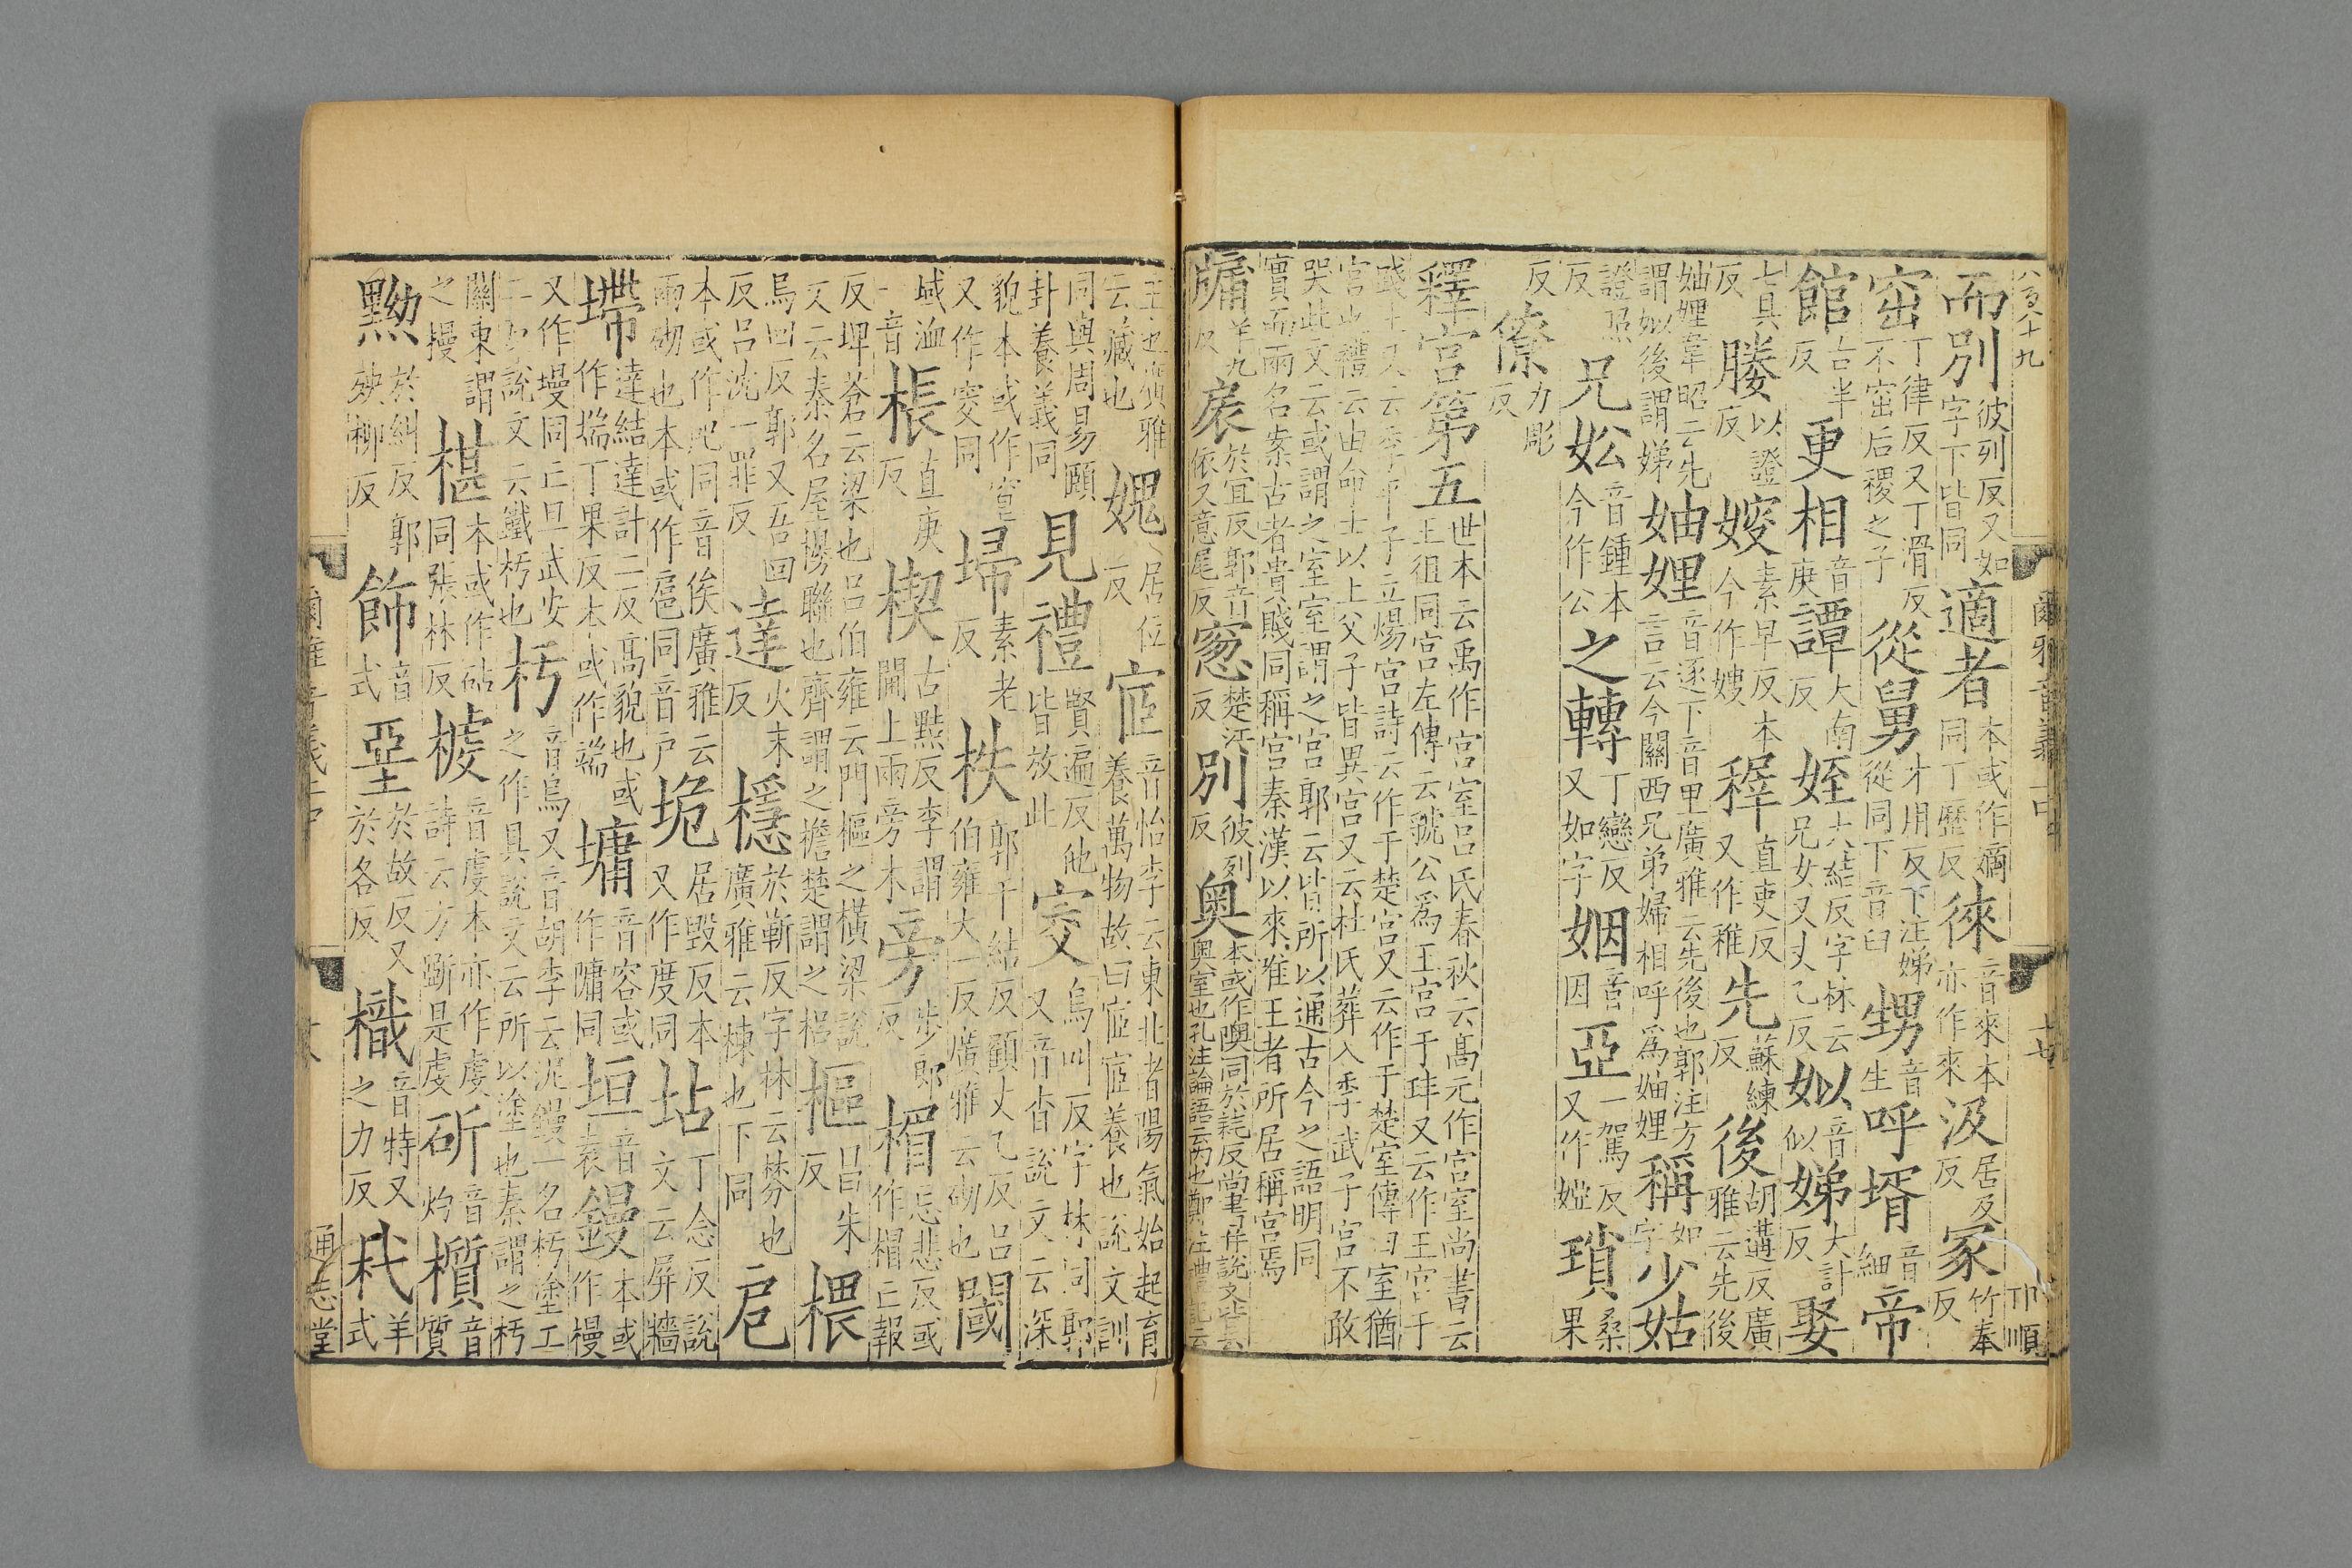 而別彼列反又如字下皆同適者本或作嫡同丁歷反徠音來本亦作來汲居及反冢竹奉反
窋丁律反又丁滑反不窋后稷之子從舅才用反下注娣從同下音臼甥音生呼壻音細帝
館古半反更相音庚譚大南反姪大結反字林云兄女又丈乙反姒音似娣大計反娶
七具反媵以證反嫂素早反本今作嫂稺直吏反又作稚先蘇練反後胡遘反廣雅云先後
妯娌韋昭云先謂姒後謂娣妯娌音逐下音里廣雅云先後也郭注方言云今關西兄弟婦相呼爲妯娌稱如字少姑
詩照反兄妐音鍾本今作公之轉丁戀反又如字姻音因亞一駕反又作婭瑣桑果
反僚力彫反
釋宮第五世本云禹作宮室呂氏春秋云高元作宮室尚書云王徂同宮左傳云虢公爲王宮于玤又云作王宮于
踐土又云季平子立煬宮詩云作于楚宮又云作于楚室傳曰室猶宮也禮云由命士以上父子皆異宮又云杜氏葬入季武子宮不敢
哭此文云或謂之室室謂之宮郭云皆所以通古今之語明同實而兩名案古者貴賤同稱宮秦漢以來唯王者所居稱宮焉
牖羊九反扆於豈反郭音依又意尾反窻楚江反別彼列反奥本或作隩同於耗反尚書并說文皆云奥室也孔注論語云內也鄭注禮記云
主也廣雅云藏也媿居位反宧音怡李云東北者陽氣始起育養萬物故曰宧宧養也說文訓
同與周易頤卦養義同見禮賢遍反他皆放此窔烏叫反字林同郭又音杳說文云深
貌本或作窅又作穾同埽素老反柣郭千結反顧丈乙反呂伯雍大一反廣雅云砌也閾
域洫二音棖直庚反楔古黠反李謂門上兩旁木旁步郎反楣亡悲反或作梠亡報
反埤蒼云梁也呂伯雍云門樞之橫梁說文云秦名屋櫋聯也齊謂之檐楚謂之梠樞昌朱反椳
烏回反郭又吾回反呂沈一罪反達火末反檼於靳反字林云棼也廣雅云棟也下同戺
本或作戺同音俟廣雅云兩砌也本或作扈同音戶垝居毀反本又作庋同坫丁念反說文云屏牆
墆達結達計二反高貌也或作㙐丁果反本或作端墉音容或作㙲同垣音袁鏝本或作槾
又作墁同亡旦武安二反說文云鐵杇也杇音烏又音胡李云泥鏝一名杇塗工之作具說文云所以塗也秦謂之杇
關東謂之槾椹本或作砧同張林反榩音虔本亦作虔詩云方斲是虔斫音灼櫍音質
黝於糾反郭殃柳反飾音式堊於故反又於各反樴音特又之力反杙羊式
爾雅音義上中
通志堂